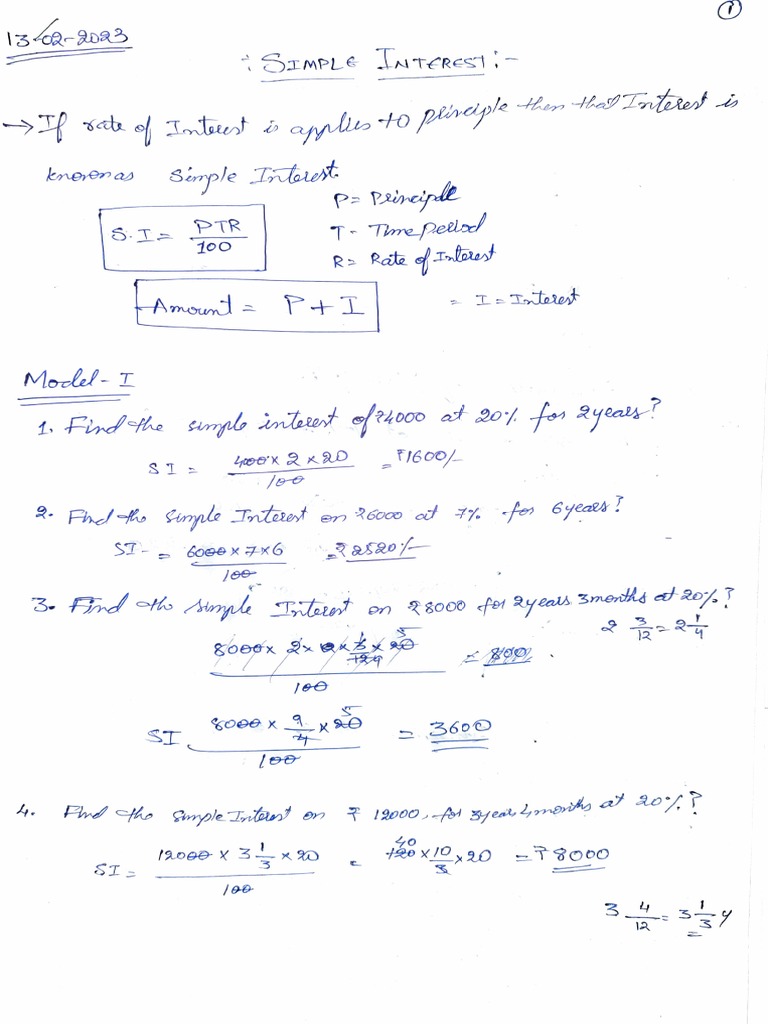 ①
13-02-2023
:SIMPLE INTEREST:-
→ If rate of Interest is applies to principle then that Interest is
known as Simple Interest.
P = Principle
S.I = PTR/100
T - Time Period
R = Rate of Interest
Amount = P + I
= I = Interest
Model - I
1. Find the simple interest of ₹4000 at 20% for 2 years?
SI = 400 x 2 x 20 / 100 = ₹1600/-
2. Find the Simple Interest on ₹6000 at 7% for 6 years?
SI - = 6000 x 7 x 6 / 100 = ₹2520/-
3. Find the simple Interest on ₹8000 for 2 years 3 months at 20%?
2 3/12 = 2 1/4
= 800
100
SI 8000 x 9/4 x 20 5 / 100 = 3600
4. Find the Simple Interest on ₹ 12000, for 3 year 4 months at 20%?
SI = 12000 x 3 1/3 x 20 / 100 = 40 120 x 10/3 x 20 = ₹8000
3 4/12 = 3 1/3 y